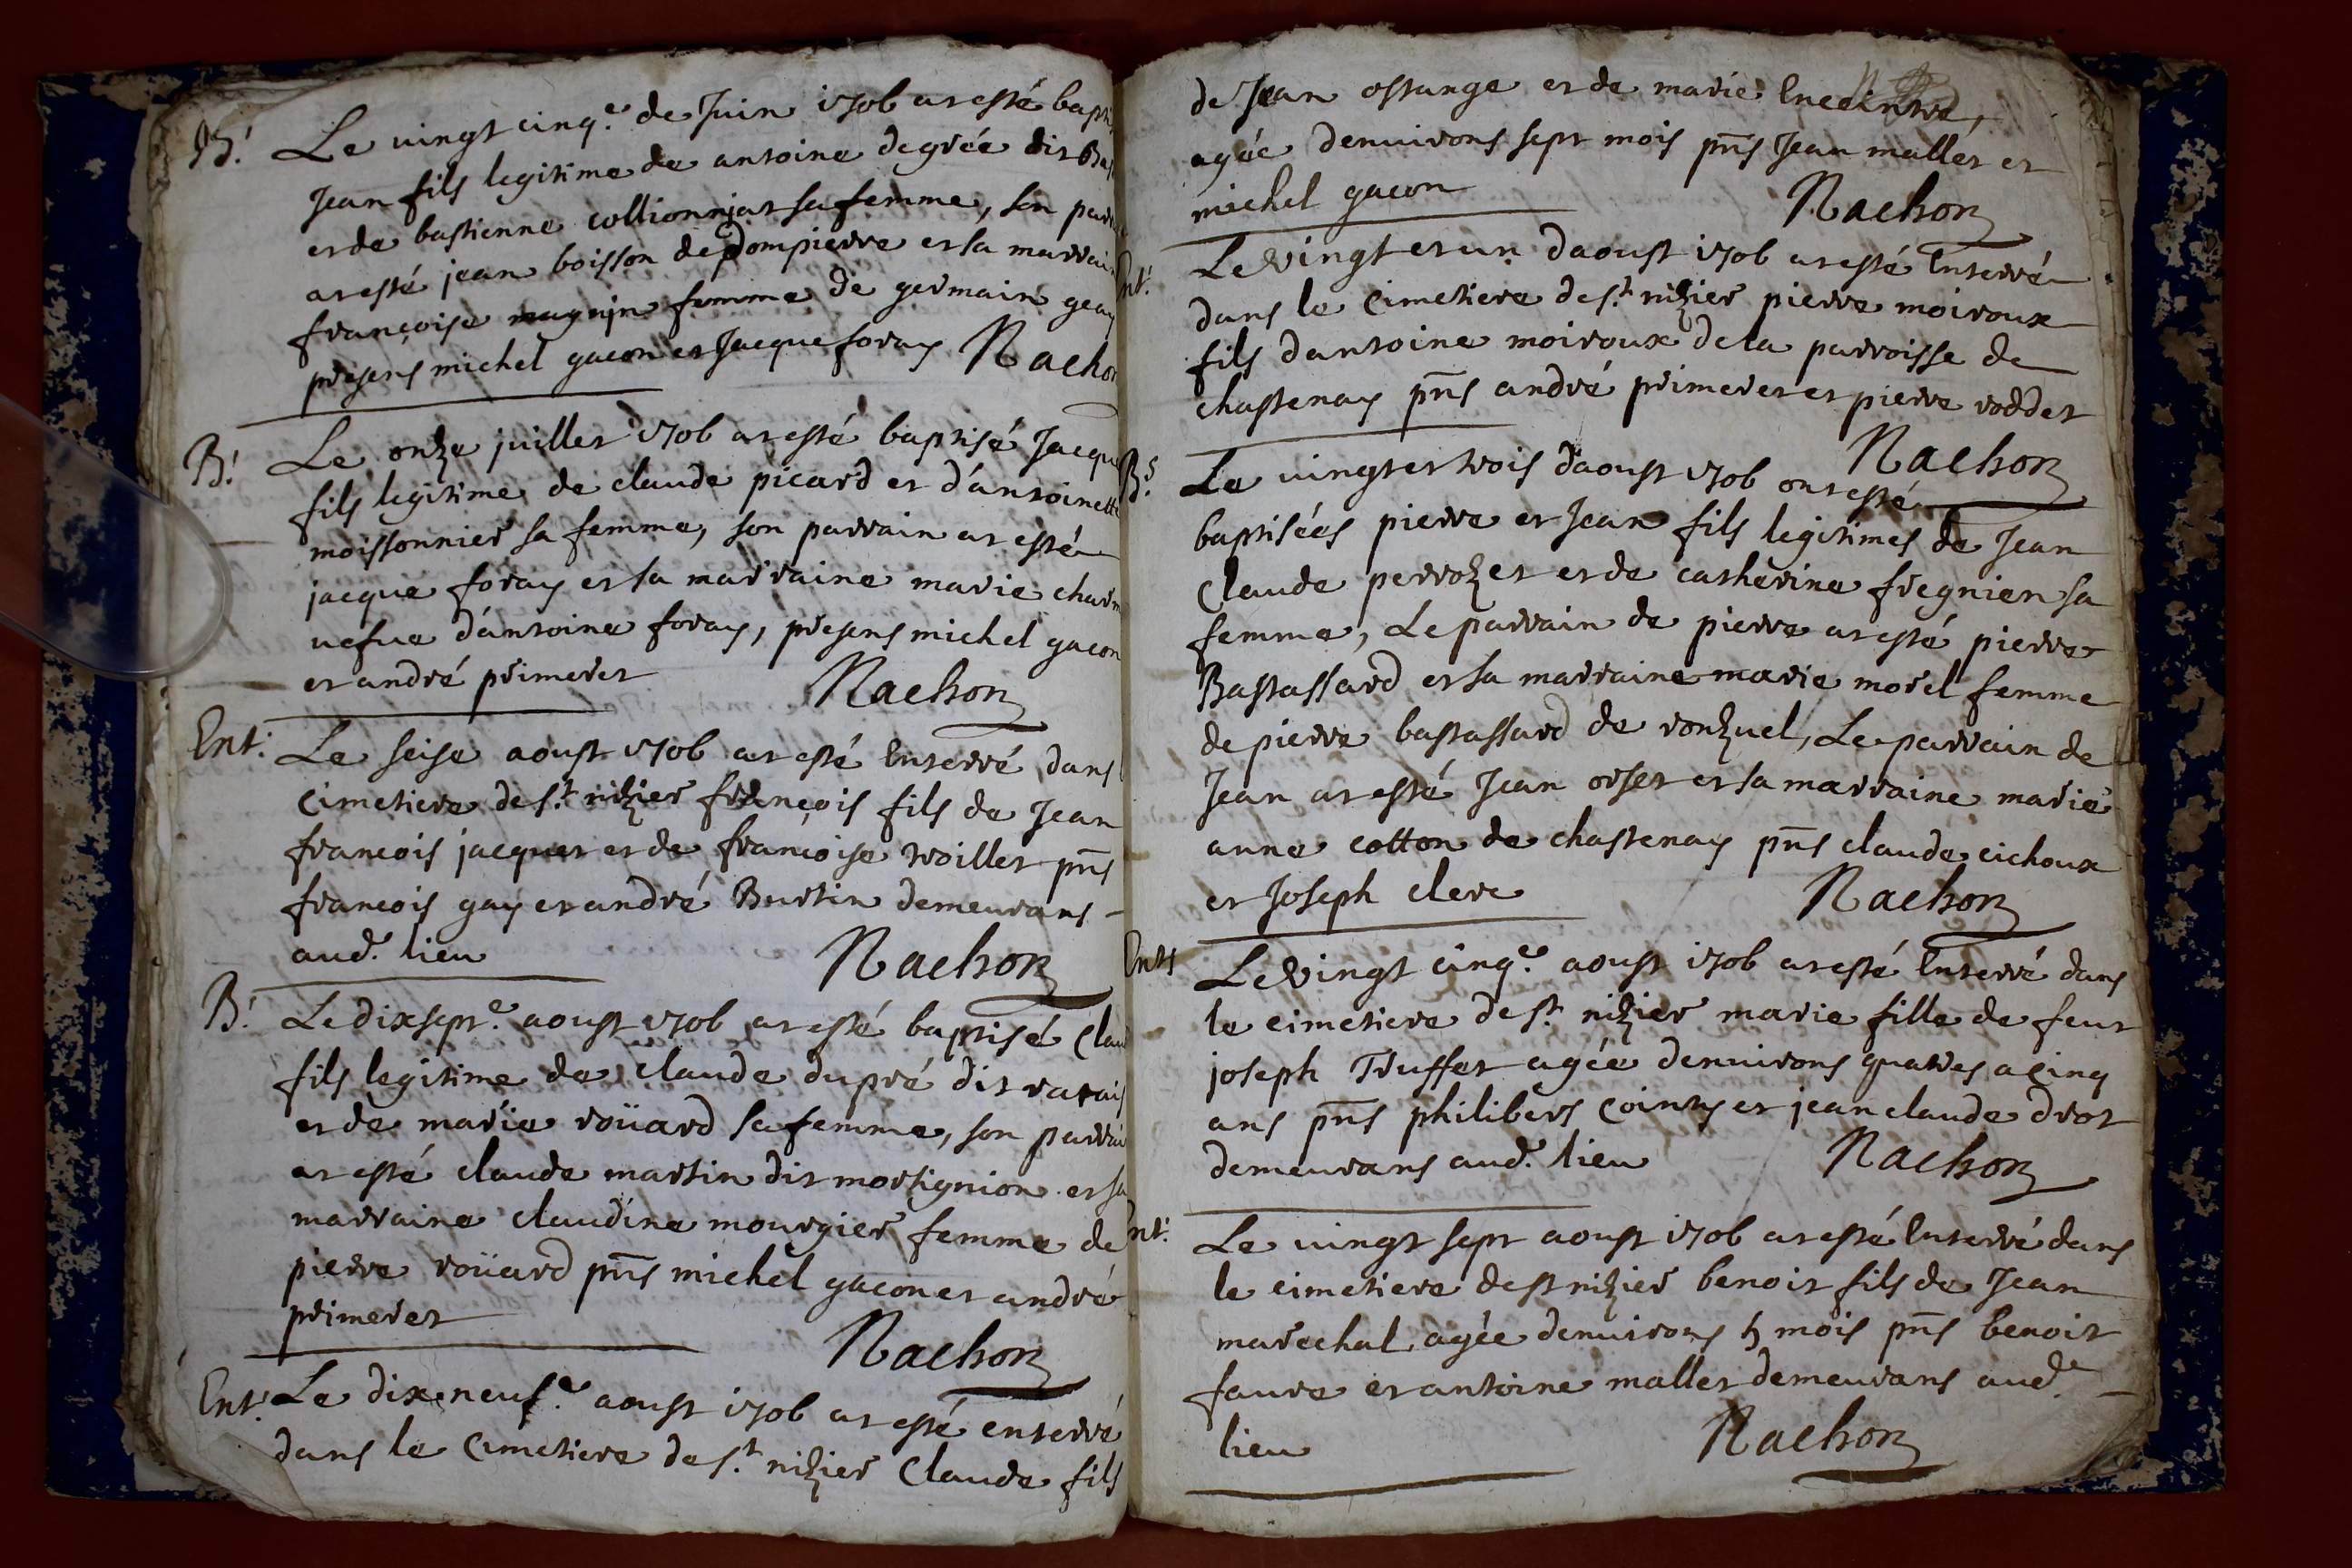 B.t Le vingt cinq.e de Juin 1706 at esté bapti
Jean fils legitime de antoine degrée dit
et de bastienne collionnjat sa femme, son parr
at esté jean boisson de dompierre et sa marrai
françoise magnjn femme de germain geay
presens michel gacon et Jacque foray Nachon
B.t Le onze juillet 1706 at esté baptisé Jacque
fils legitime de claude picard et d'antoinette
moissonnier sa femme, son parrain at esté
jacque foray et sa marraine marie charn
vefve d'antoine foray, presens michel gacon
et andré primeret Nachon
Ent. Le seise aoust 1706 at esté Enterré dans
Cimetiere de s.t nizier françois fils de Jean
francois jacquet et de françoise troillet pñs
francois gay et andré Burtin demeurans
aud. lieu Nachon
B.t Le dixsept.e aoust 1706 at esté baptisé Clau
fils legitime de claude dupré dit
et de marie roüard sa femme, son parrai
at esté claude martin dit mortignion et sa
marraine claudine mourgier femme de
pierre roüard pñs michel gacon et andré
primeret Nachon
Ent. Le dixneuf.e aoust 1706 at esté enterré
dans le Cimetiere de s.t nizier Claude fils
de Jean ossange et de marie Enceintre,
agée denvirons sept mois pñs Jean mallet et
michel gacon Nachon
Ent. Le Vingt et un daoust 1706 at esté Enterré
dans le Cimetiere de s.t nizier pierre moiroux
fils dantoine moiroux de la parroisse de
chastenay pñs andré primeret et pierre roddet
Nachon
B.s Le vingt et trois daoust 1706 ont esté
baptisées pierre et Jean fils legitimes de Jean
Claude perrozet et de catherine fregnien sa
femme, Le parrain de pierre at esté pierre
Bastassard et sa marraine marie morel femme
de pierre bastassard de ronzuel, Le parrain de
Jean at esté Jean orset et sa marraine marie
anne cotton de chastenay pñs claude cichoux
et Joseph clerc Nachon
Ent. Le Vingt cinq.e aoust 1706 at esté Enterré dans
le cimetiere de s.t nizier marie fille de feut
joseph Truffet agée denvirons quatres a Cinq
ans pñs philibert Cointy et jean claude drot
demeurans aud. lieu Nachon
Ent. Le vingt sept aoust 1706 at esté Enterré dans
le cimetiere de st nizier benoit fils de Jean
marechal, agée denvirons 5 mois pñs benoit
favre et antoine mallet demeurans aud.e
lieu Nachon